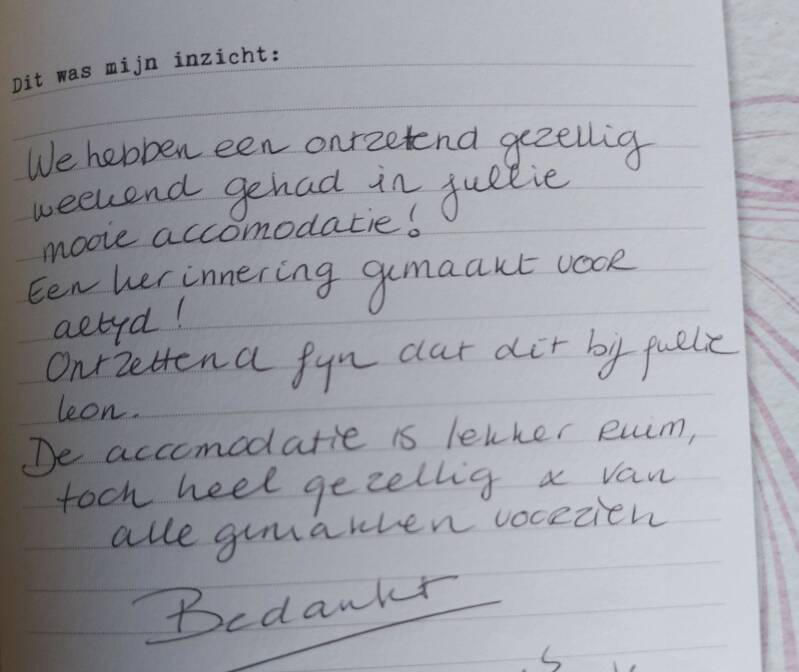 Dit was mijn inzicht:
We hebben een ontzettend gezellig
weekend gehad in jullie
mooie accomodatie!
Een herinnering gemaakt voor
altyd!
Ontzettend fyn dat dit bij jullie
kon.
De accomodatie is lekker ruim,
toch heel gezellig & van
alle gemakken voorzien
Bedankt